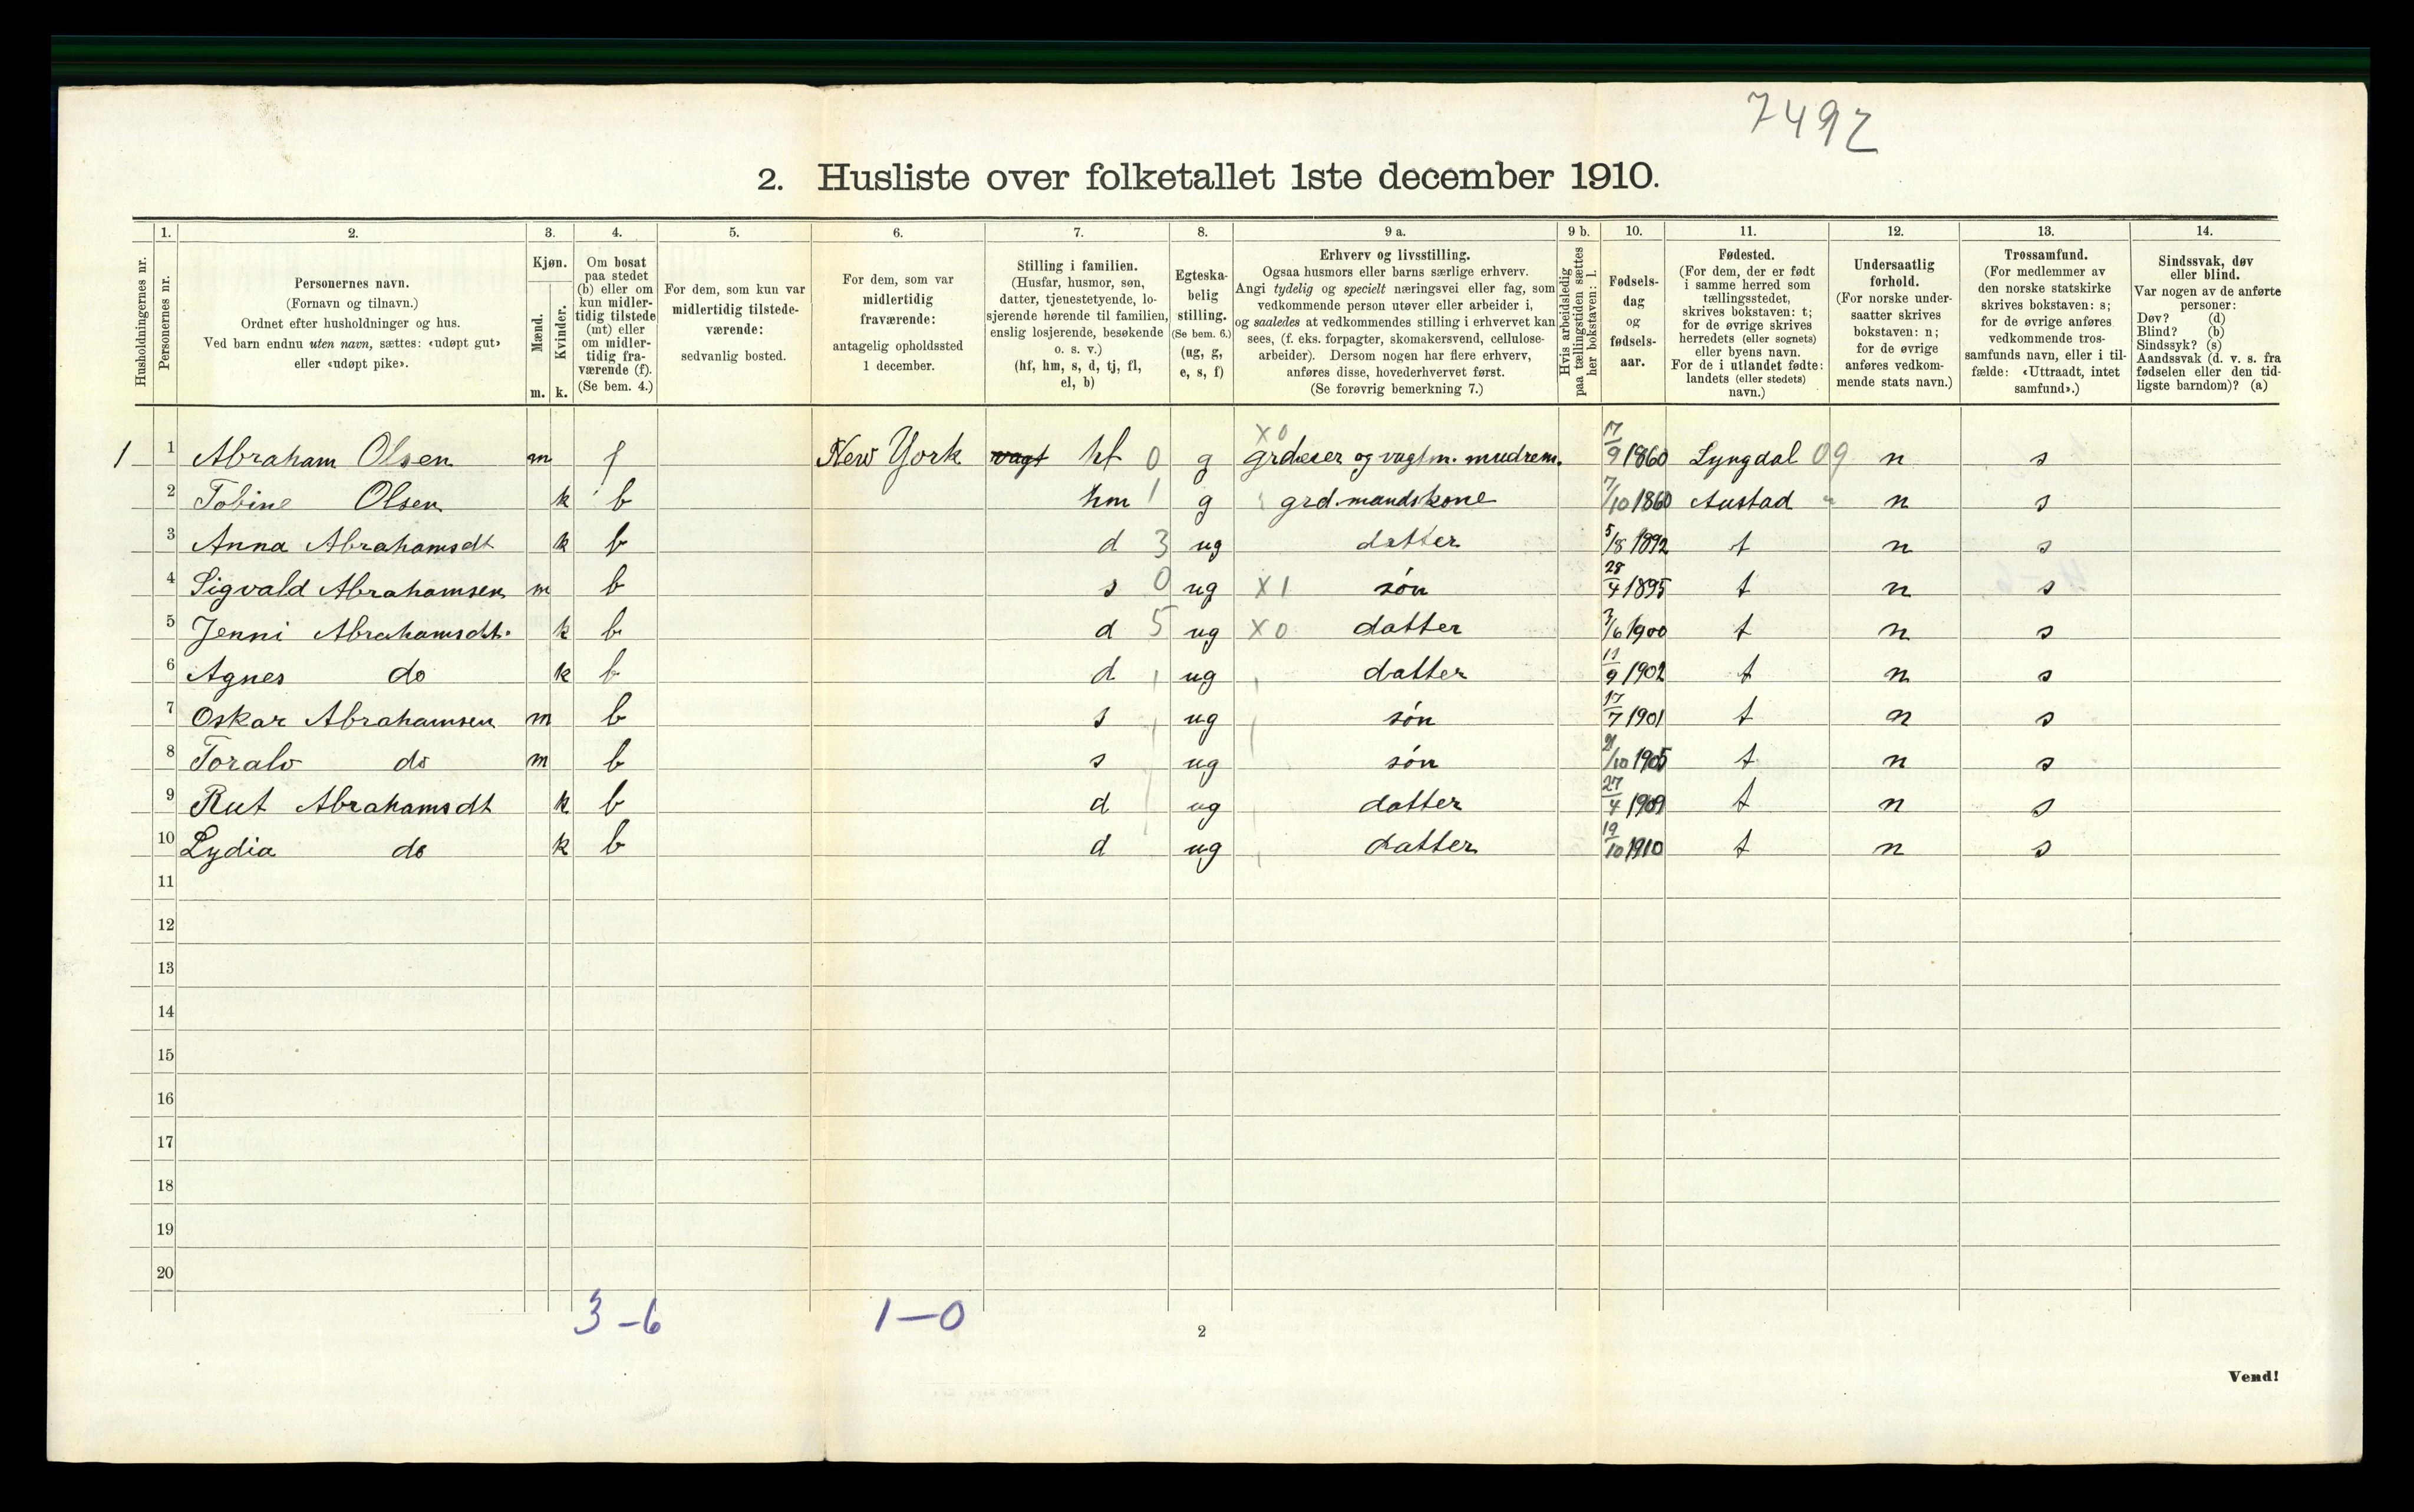 7492
2. Husliste over folketallet 1ste december 1910.
Husholdningernes nr.
1.
Personernes nr.
2.
Personernes navn.
(Fornavn og tilnavn.)
Ordnet efter husholdninger og hus.
Ved barn endnu uten navn, sættes: «udøpt gut»
eller «udøpt pike».
3.
Kjøn.
Mænd.
Kvinder.
m. k.
4.
Om bosat
paa stedet
(b) eller om
kun midler-
tidig tilstede
(mt) eller
om midler-
tidig fra-
værende (f).
(Se bem. 4.)
5.
For dem, som kun var
midlertidig tilstede-
værende:
sedvanlig bosted.
6.
For dem, som var
midlertidig
fraværende:
antagelig opholdssted
1 december.
7.
Stilling i familien.
(Husfar, husmor, søn,
datter, tjenestetyende, lo-
sjerende hørende til familien,
enslig losjerende, besøkende
o. s. v.)
(hf, hm, s, d, tj, fl,
el, b)
8.
Egteska-
belig
stilling.
(Se bem. 6.)
(ug, g,
e, s, f)
9 a.
Erhverv og livsstilling.
Ogsaa husmors eller barns særlige erhverv.
Angi tydelig og specielt næringsvei eller fag, som
vedkommende person utøver eller arbeider i,
og saaledes at vedkommendes stilling i erhvervet kan
sees, (f. eks. forpagter, skomakersvend, cellulose-
arbeider). Dersom nogen har flere erhverv,
anføres disse, hovederhvervet først.
(Se forøvrig bemerkning 7.)
9 b.
Hvis arbeidsledig
paa tællingstiden sættes
her bokstaven: l.
10.
Fødsels-
dag
og
fødsels-
aar.
11.
Fødested.
(For dem, der er født
i samme herred som
tællingsstedet,
skrives bokstaven: t;
for de øvrige skrives
herredets (eller sognets)
eller byens navn.
For de i utlandet fødte:
landets (eller stedets)
navn.)
12.
Undersaatlig
forhold.
(For norske under-
saatter skrives
bokstaven: n;
for de øvrige
anføres vedkom-
mende stats navn.)
13.
Trossamfund.
(For medlemmer av
den norske statskirke
skrives bokstaven: s;
for de øvrige anføres
vedkommende tros-
samfunds navn, eller i til-
fælde: «Uttraadt, intet
samfund».)
14.
Sindssvak, døv
eller blind.
Var nogen av de anførte
personer:
Døv? (d)
Blind? (b)
Sindssyk? (s)
Aandssvak (d. v. s. fra
fødselen eller den tid-
ligste barndom)? (a)
1 1 Abraham Olsen m f New York vagt hf 0 g X 0 grdeier og vagtm. mudrem. 17/9 1860 Lyngdal 09 n s
2 Tobine Olsen k b hm 1 g grd.mandskone 7/10 1860 Austad " n s
3 Anna Abrahamsdt k b d 3 ug datter 5/8 1892 t n s
4 Sigvald Abrahamsen m b s 0 ug X 1 søn 28/4 1895 t n s
5 Jenni Abrahamsdt. k b d 5 ug X 0 datter 3/6 1900 t n s
6 Agnes do k b d ug datter 11/9 1902 t n s
7 Oskar Abrahamsen m b s ug søn 17/7 1901 t n s
8 Toralv do m b s ug søn 21/10 1905 t n s
9 Rut Abrahamsdt k b d ug datter 27/4 1909 t n s
10 Lydia do k b d ug datter 19/10 1910 t n s
11
12
13
14
15
16
17
18
19
20
3-6 1-0
2
Vend!